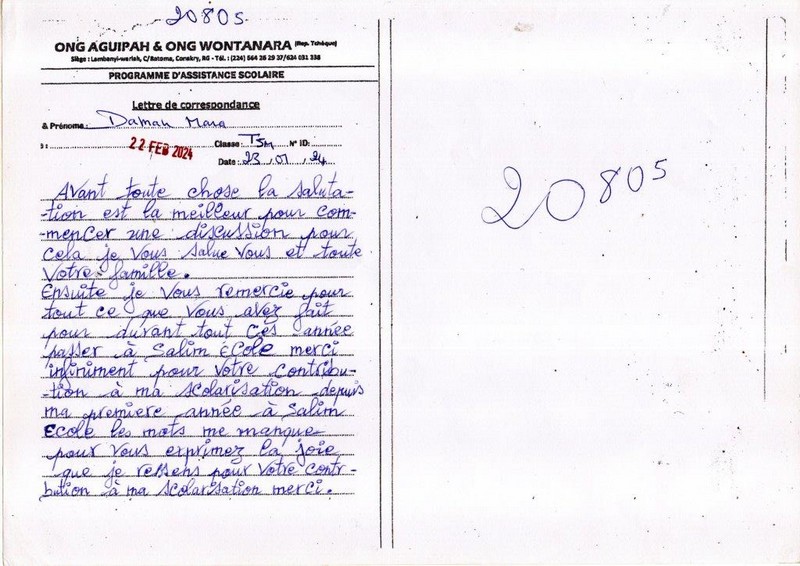 20805.
ONG AGUIPAH & ONG WONTANARA (Rep. Tchèque)
Siège : Lambanyi-wariah, C/Ratoma, Conakry, RG - Tél. : (224) 664 26 29 37/624 031 338
PROGRAMME D'ASSISTANCE SCOLAIRE
Lettre de correspondance
& Prénoms: Daman Mara
Classe: TSM N° ID:
22 FEB 2024
Date: 23, 01, 24
Avant toute chose la saluta-
-tion est la meilleur pour com-
-mencer une discussion pour
cela je vous salue vous et toute
votre famille.
Ensuite je vous remercie pour
tout ce que vous avez fait
pour durant tout ces année
passer à Salim Ecole merci
infiniment pour votre contribu-
-tion à ma scolarisation depuis
ma premiere année à Salim
Ecole les mots me manque
pour vous exprimez la joie
que je ressens pour votre contri-
bution à ma scolarisation merci.
20805